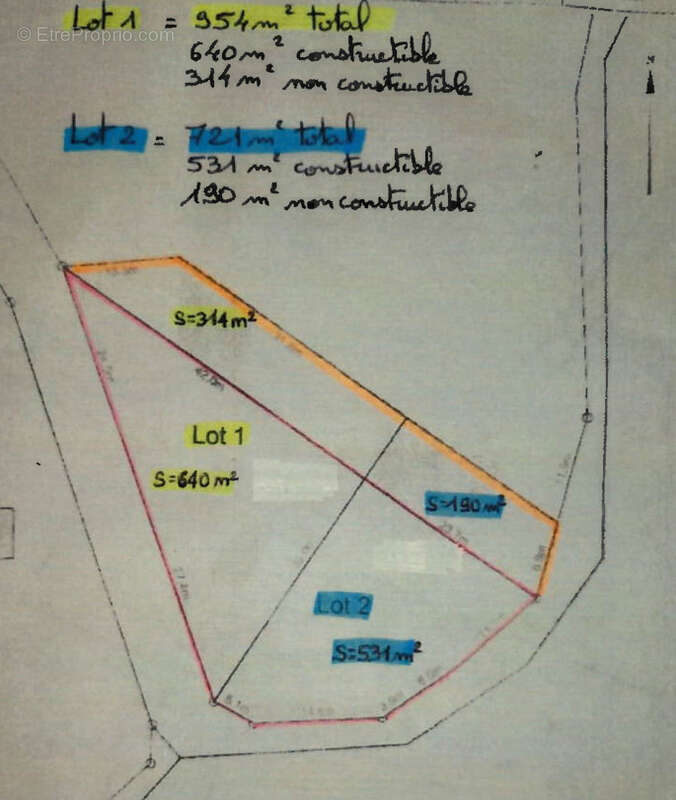 Lot 1 = 954 m² total
© EtreProprio.com
640 m² constructible
314 m² non constructible
Lot 2 = 721 m² total
531 m² constructible
190 m² non constructible
S=314 m²
42.0m
Lot 1
S=640 m²
S=190 m²
20.7m
Lot 2
S=531 m²